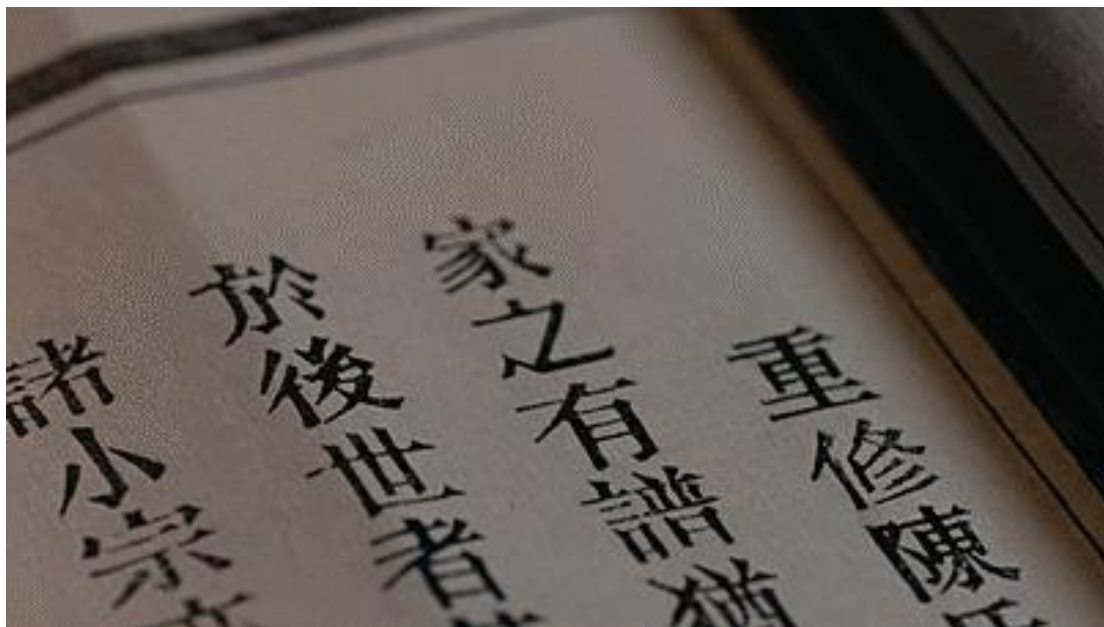 重修陳氏
家之有譜猶
於後世者
諸小宗